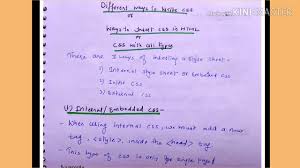 Different ways to write css
or
Ways to insert css in HTML
or
CSS with all types
- There are 3 ways of inserting a style sheet -
1) Internal style sheet or Embedded css
2) Inline css
3) External css
1) Internal/Embedded css -
- When using internal css, we must add a new
tag, <style>, inside the <head> tag.
- This type of css is only for single page
Made with KINEMASTER